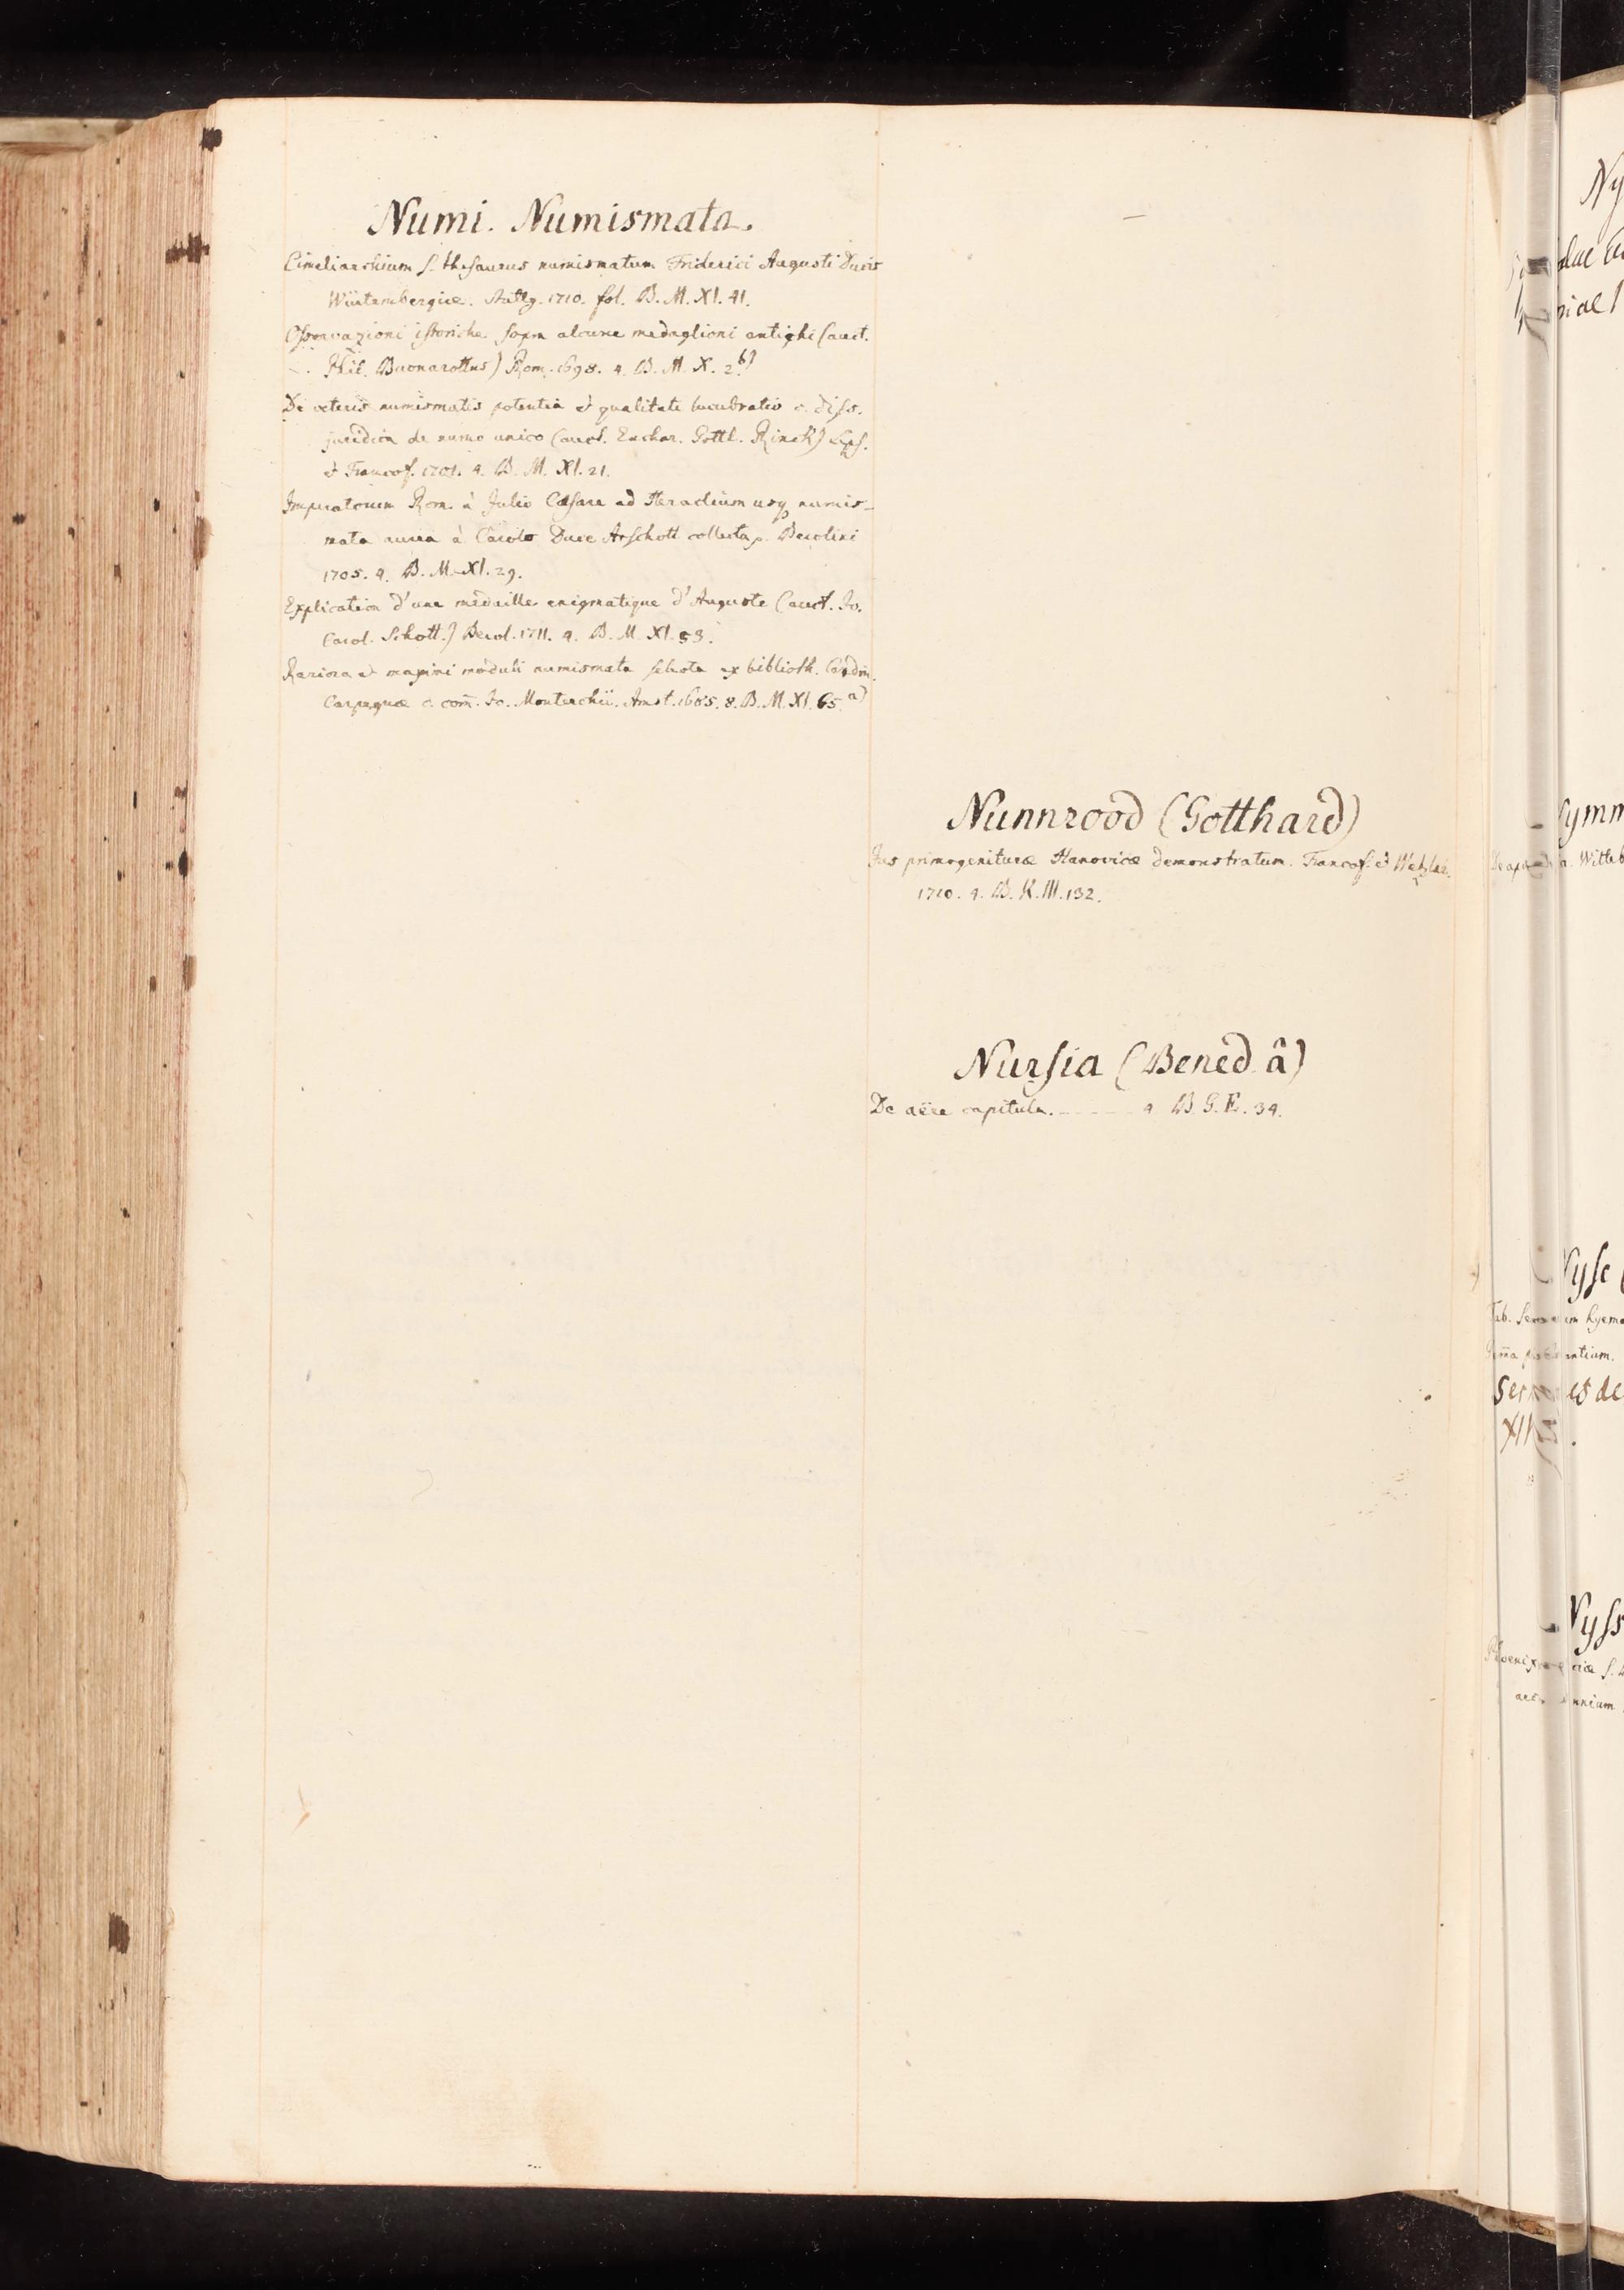 Numi. Numismata.
Cimeliarchium s. thesaurus numismatum Friderici Augusti Ducis
Würtembergiæ. Stuttg. 1710. fol. B. M. XI. 41.
Osservazioni istoriche sopra alcune medaglioni antighi (auct.
Phil. Buonarottus) Rom. 1698. 4. B. M. X. 2. b)
De veteris numismatis potentia et qualitate lucubratio c. diss.
juridica de numo unico (auct. Euchar. Gottl. Rinck) Lips.
et Francof. 1701. 4. B. M. XI. 21.
Imperatorum Rom. à Julio Cæsare ad Heraclium usq numis-
mata aurea à Carolo Duce Arschott collecta p. Berolini
1705. 4. B. M. XI. 29.
Explication d'une médaille enigmatique d'Auguste (auct. Jo.
Carol. Schott.) Berol. 1711. 4. B. M. XI. 53.
Rariora et maximi moduli numismata selecta ex biblioth. Cardin.
Carpegnæ c. com̄. Jo. Monterchii. Amst. 1685. 8. B. M. XI. 65. a)
Nunnrood (Gotthard)
Jus primogenituræ Hanovicæ demonstratum. Francof. et Wetzlar.
1710. 4. B. K. III. 132.
Nursia (Bened. â)
De aëre capitula. — — — 4. B. G. E. 34.